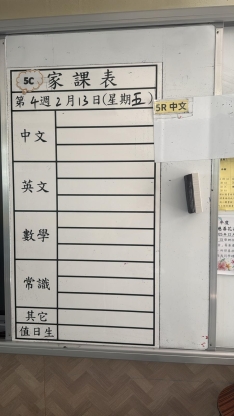 5C 家課表
第4週2月13日(星期五)
5R 中文
中文
英文
數學
常識
其它
值日生